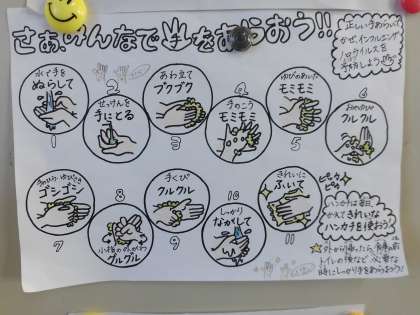 さあ、みんなで手をあらおう!!
正しい手あらいで
かぜ、インフルエンザ
ノロウイルスを
予防しよう
水で手を
ぬらして
1
2
せっけんを
手にとる
あわ立て
ブクブク
3
4
手のこう
モミモミ
ゆびのあいだ
モミモミ
5
6
おやゆび
クルクル
手のひら・ゆびさき
ゴシゴシ
7
8
小指のがわ
グルグル
手くび
クルクル
9
10
しっかり
ながして
きれいに
ふいて
11
ピカ
ピカ
ハンカチは毎日
かえてきれいな
ハンカチを使おう
外から帰ったら、食事の前
トイレの後など、必要な
時にしっかり手をあらおう!